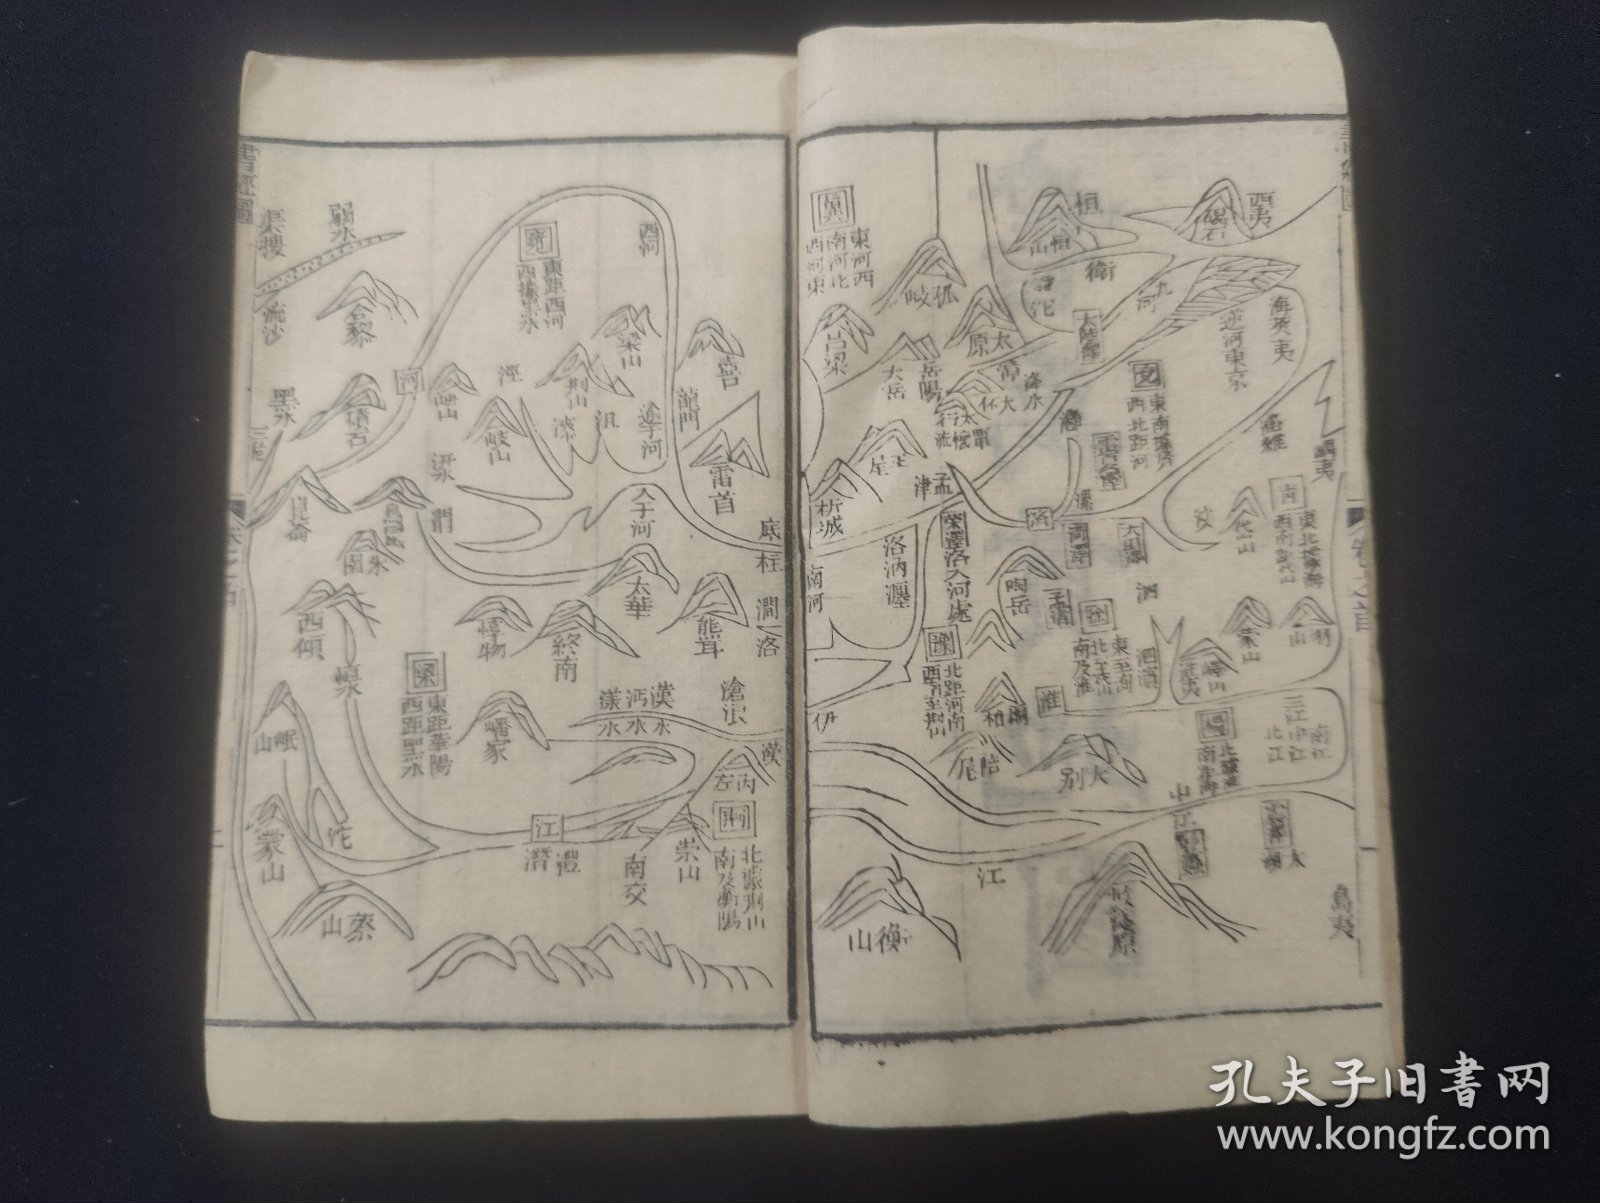 西夷
碣石
恒
恒山
衛
九
河
海
逆河東
嵎夷
冀
東河西
南河北
西河東
狐岐
太原
大陸澤
呂梁
岳陽
大岳
降水
大伾
太行
覃懷
兗
東南據濟
西北距河
雷夏澤
漯
濟
孟津
析城
王屋
滎澤
洛入河處
洛汭瀍
南河
陶岳
菏澤
大野澤
泗
汶
岱山
青
東北據海
西南距岱山
徐
東至海
北至岱山
南及淮
泗濱
蒙山
羽山
嶧山
淮夷
豫
北距河南
西南至荆山
桐柏
淮
伊
陪尾
大别
揚
北據淮
南距海
三江中江
南江
北江
江
衡山
敷淺原
島夷
卷之首
書經圖
渠搜
弱水
流沙
合黎
黑水
積石
三危
崑崙
河
雍
東距西河
西據黑水
西河
梁山
荆山
涇
岐山
漆
沮
逾于河
龍門
壺口
雷首
渭
鳥鼠
朱圉
入于河
底柱
太華
熊耳
澗
洛
西傾
桓水
惇物
終南
梁
東距華陽
西距黑水
漢水
沔水
漾水
滄浪
漢
嶓冢
岷山
沱
蒙山
蔡山
江
潛
澧
南交
崇山
内
左
荆
北據荆山
南及衡陽
孔夫子旧書网
www.kongfz.com